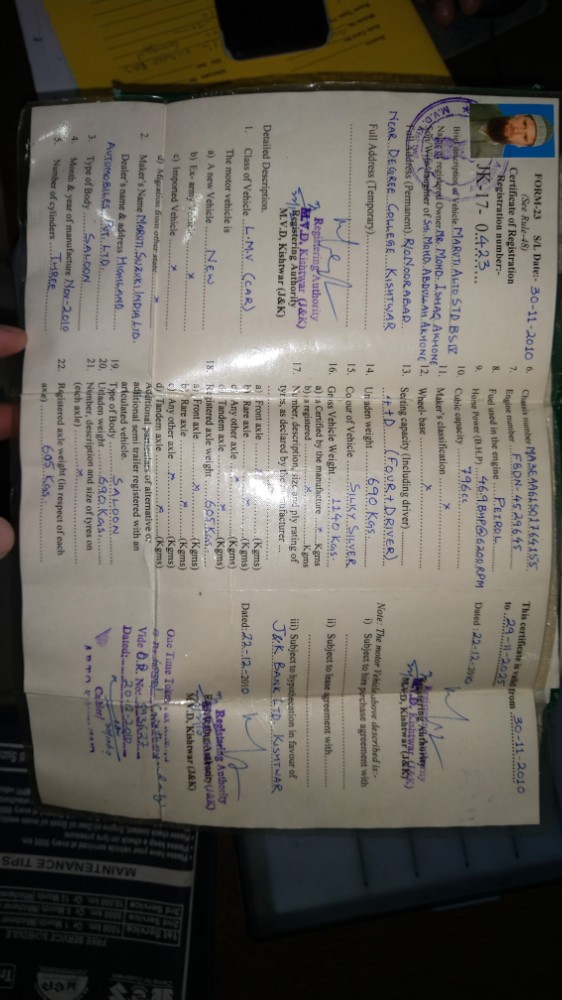 FORM-23 S/L Date: 30-11-2010
(See Rule-48)
Certificate of Registration
Registration number:-
JK-17-0423
Brief description of Vehicle MARUTI ALTO STD BSIV
Name of registered Owner MR. MOHD. ISHAQ AKHONE
Son/Wife/Daughter of SH. MOHD ABDULLAH AKHONE
Full Address (Permanent) R/O NOORABAD
NEAR DEGREE COLLEGE KISHTWAR
Full Address (Temporary)
Registering Authority
M.V.D, Kishtwar (J&K)
Registering Authority
M.V.D, Kishtwar (J&K)
Detailed Description.
1. Class of Vehicle L.M.V (CAR)
The motor vehicle is
a) A new Vehicle NEW
b) Ex-army Vehicle x
c) Imported Vehicle x
d) Migration from other state x
2. Maker's Name MARUTI SUZUKI INDIA LTD.
Dealer's name & address HIGHLAND
AUTOMOBILES PVT. LTD.
3. Type of Body SALOON
4. Month & year of manufacture NOV-2010
5. Number of cylinders THREE
6. Chassis number
7. Engine number F8DN-4529645
8. Fuel used in the engine PETROL
9. Horse Power (B.H.P) 46.9 BHP@6200 RPM
10. Cubic capacity 796cc
11. Maker's classification x
12. Wheel- base x
13. Seating capacity (Including driver)
4+D (FOUR+DRIVER)
14. Unladen weight 690 KGS.
15. Colour of Vehicle SILKY SILVER
16. Gross Vehicle Weight 1140 KGS.
a) s Certified by the manufacture x Kgms
b) s registered x Kgms
17. Number, description, size and ply rating of
tyres, as declared by the manufacturer
a) Front axle (Kgms)
b) Rare axle x (Kgms)
c) Any other axle x (Kgms)
d) Tandem axle x (Kgms)
18. Registered axle weight 605 KGS.
a) Front axle x (Kgms)
b) Rare axle x (Kgms)
c) Any other axle x (Kgms)
d) Tandem axle x (Kgms)
Additional particulars of alternative or
additional semi trailer registered with an
articulated vehicle.
19. Type of Body SALOON
20. Unladen weight 690 KGS.
21. Number, description and size of tyres on
(each axle) x
22. Registered axle weight (in respect of each
axle) 605 KGS.
This certificate is valid from 30-11-2010
to 29-11-2025
Dated: 22-12-2010
Registering Authority
M.V.D, Kishtwar (J&K)
Note: The motor Vehicle above described is:-
i) Subject to hire purchase agreement with
ii) Subject to lease agreement with
iii) Subject to hypothecation in favour of
J&K BANK LTD KISHTWAR
Dated: 22-12-2010
Registering Authority
M.V.D, Kishtwar (J&K)
One Time Token
Vide O.R. No:
Dated: 20-12-2010
MAINTENANCE TIPS
FREE SERVICE SCHEDULE
1st Service
2nd Service
3rd Service